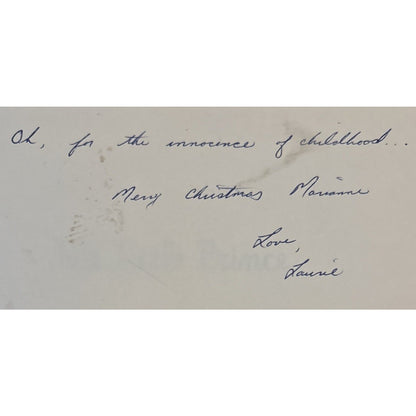 Oh, for the innocence of childhood...
Merry Christmas Marianne
Love,
Laurie